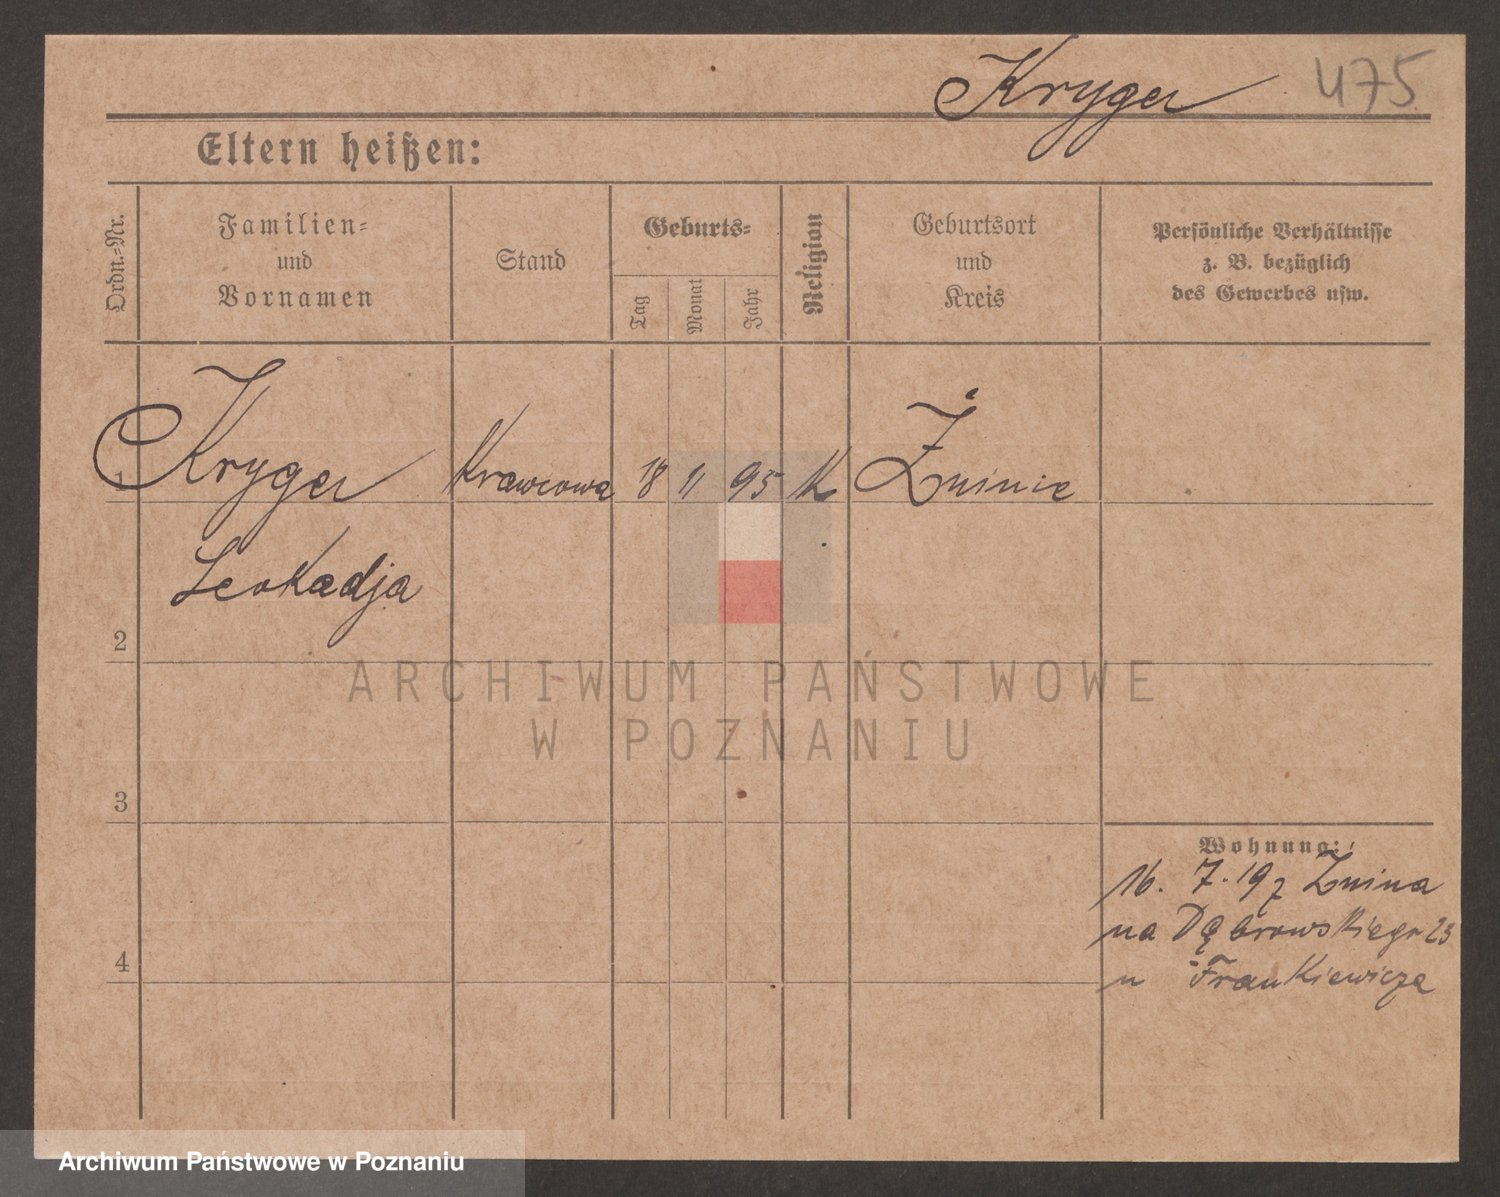 Kryger 475
Eltern heißen:
Ordn.-Nr.
Familien-
und
Vornamen
Stand
Geburts-
Tag
Monat
Jahr
Religion
Geburtsort
und
Kreis
Persönliche Verhältnisse
z. B. bezüglich
des Gewerbes usw.
1 Kryger Krawcowa 18 11 95 K Żninie
Leokadja
2
3
4
Wohnung:
16. 7. 19 z Żnina
na Dąbrowskiego 23
u Frankiewicza
ARCHIWUM PAŃSTWOWE
W POZNANIU
Archiwum Państwowe w Poznaniu